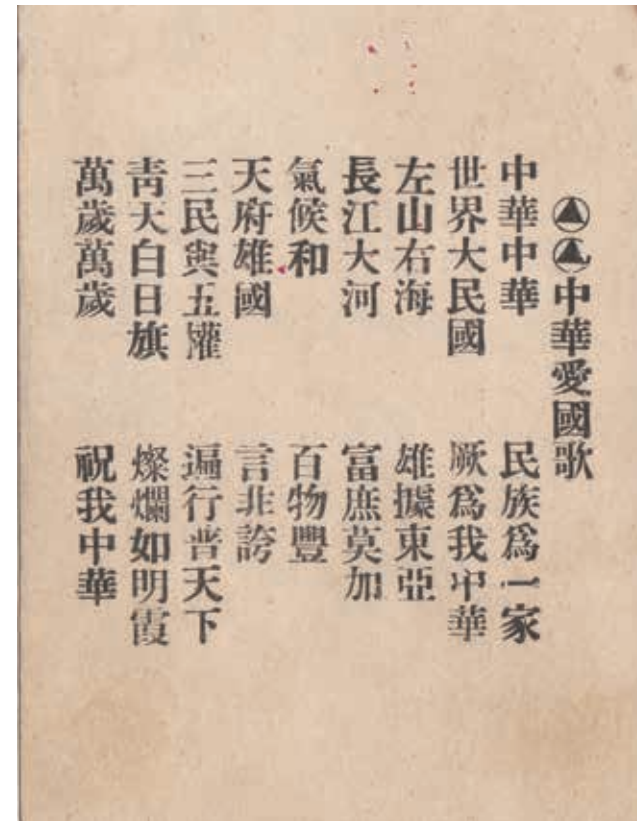 中華愛國歌
中華中華　民族爲一家
世界大民國　厥爲我中華
左山右海　雄據東亞
長江大河　富庶莫加
氣候和　百物豐
天府雄國　言非誇
三民與五權　遍行普天下
青天白日旗　燦爛如明霞
萬歲萬歲　祝我中華